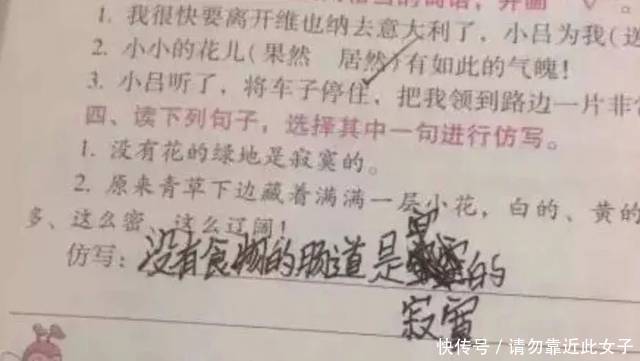 1. 我很快要离开维也纳去意大利了，小吕为我(送
2. 小小的花儿(果然 居然)有如此的气魄!
3. 小吕听了，将车子停住，把我领到路边一片非常
四、读下列句子，选择其中一句进行仿写。
1. 没有花的绿地是寂寞的。
2. 原来青草下边藏着满满一层小花，白的、黄的
多、这么密、这么辽阔!
仿写: 没有食物的肠道是 的
寂寞
快传号／请勿靠近此女子